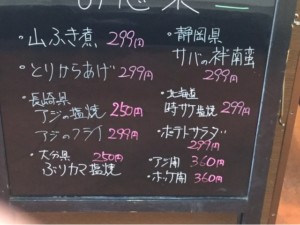 ・山ふき煮 299円
・とりからあげ 299円
・長崎県
アジの塩焼 250円
アジのフライ 299円
・大分県 250円
ぶりカマ塩焼
・静岡県
サバの袢南蛮
299円
・北海道
時サケ塩焼 299円
・ポテトサラダ
299円
・アジ開 360円
・ホッケ開 360円